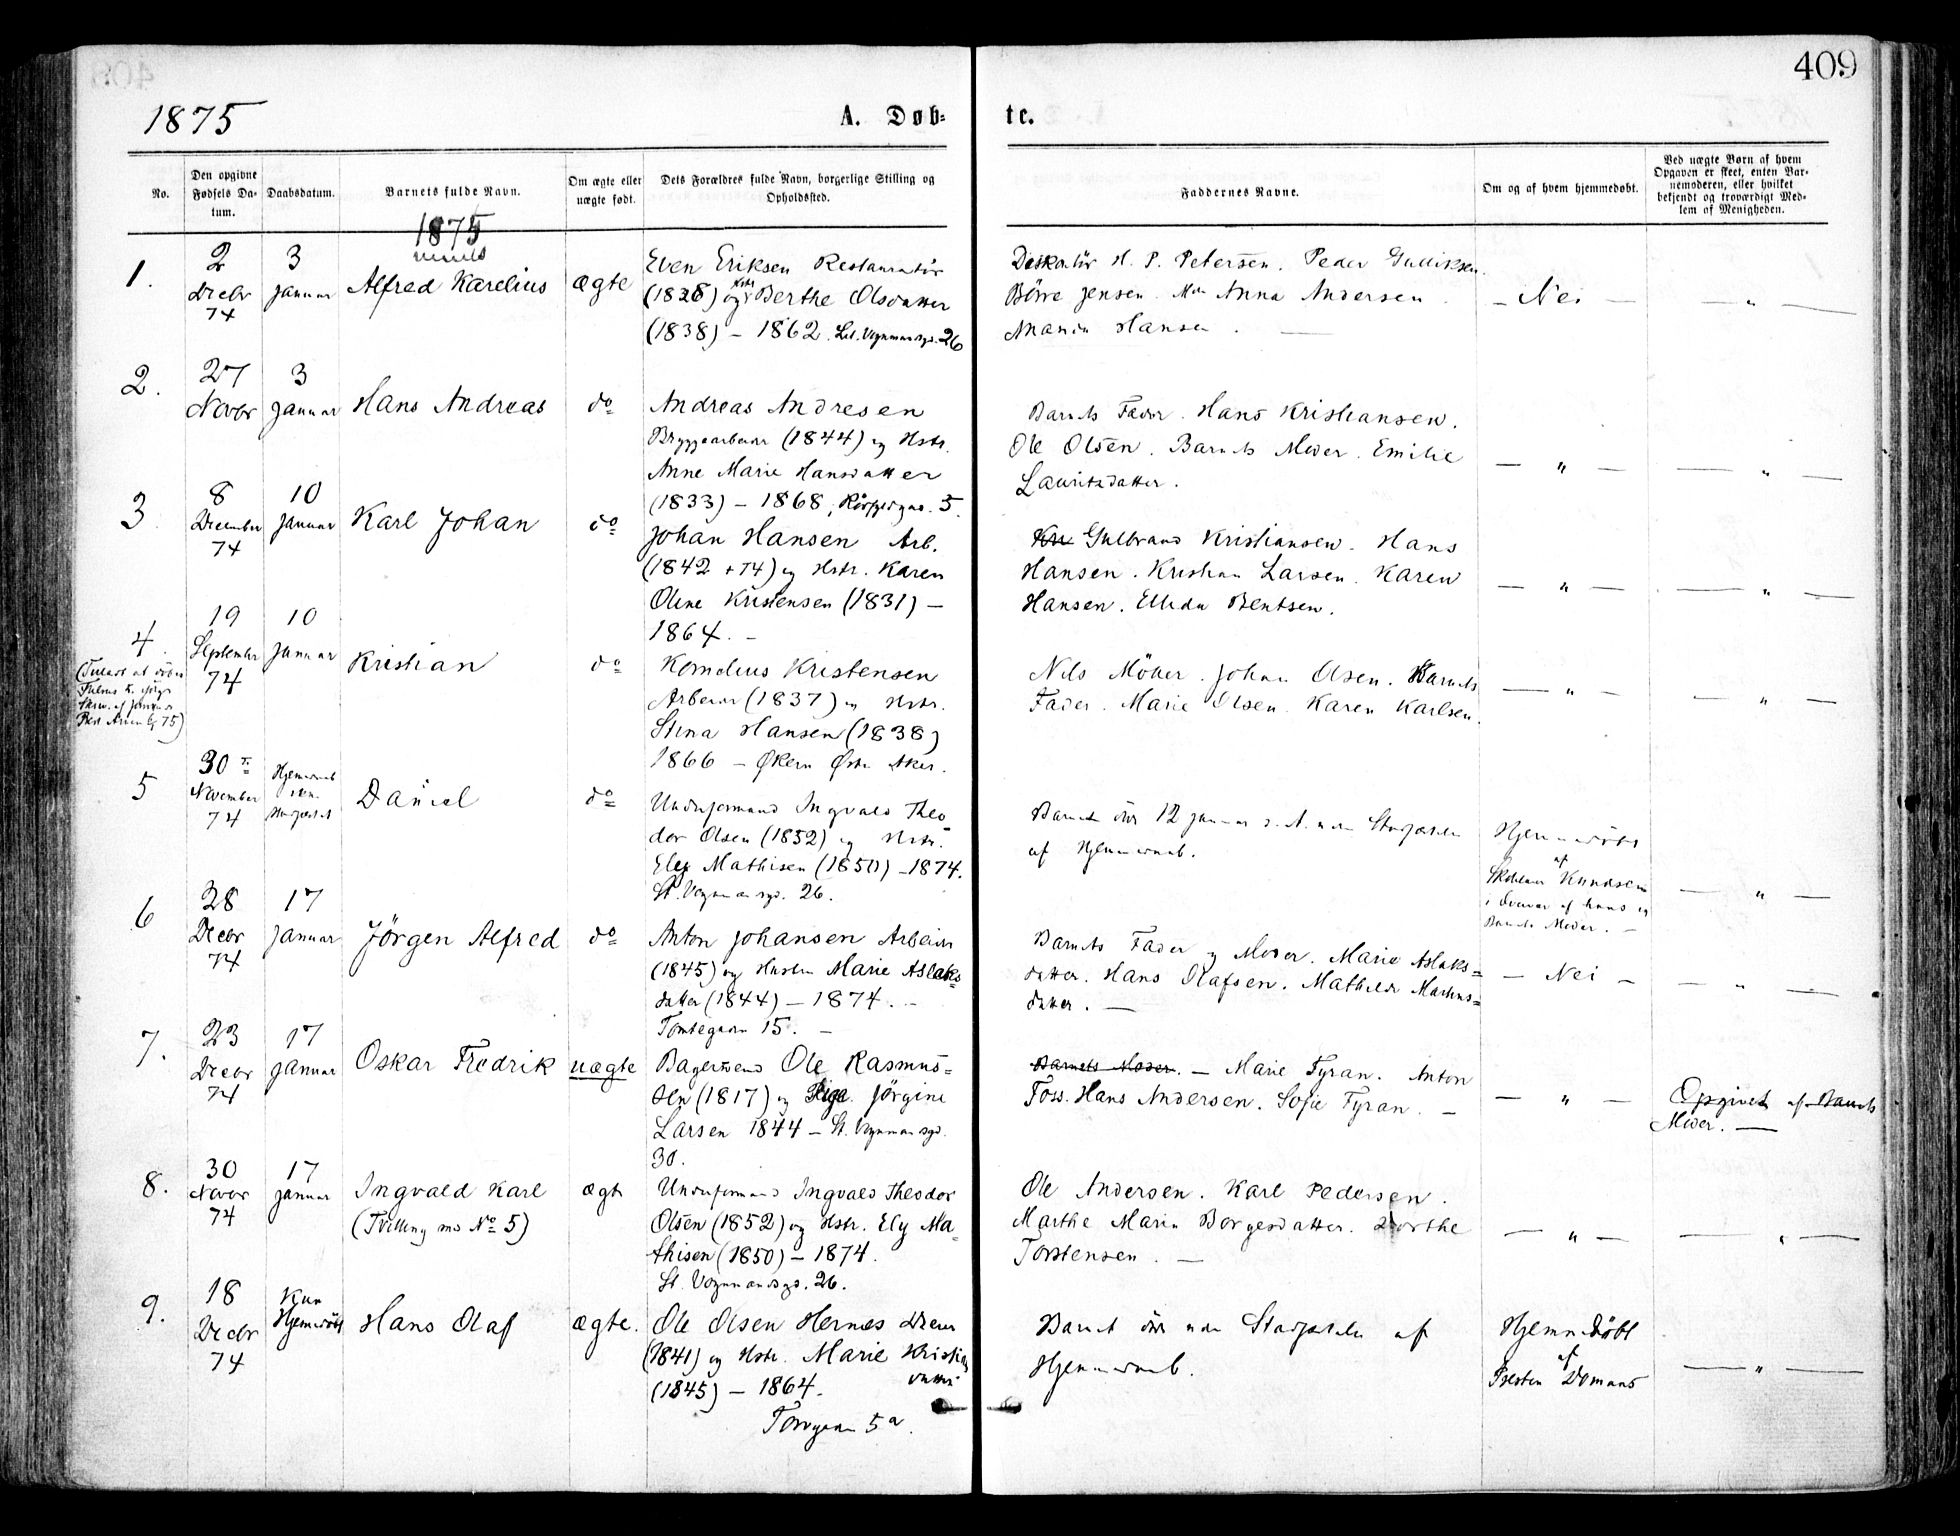 409
1875
A. Døb-
te.
No.
Den opgivne
Fødsels Da-
tum.
Daabsdatum.
Barnets fulde Navn.
Om ægte eller
uægte født.
Dets Forældres fulde Navn, borgerlige Stilling og
Opholdssted.
Faddernes Navne.
Om og af hvem hjemmedøbt.
Ved uægte Børn af hvem
Opgaven er skeet, enten Bar-
nemoderen, eller hvilket
bekjendt og troværdigt Med-
lem af Menigheden.
1875
1.
2
Decbr
74
3
Januar
Alfred Karelius
ægte
Even Eriksen Restauratør
(1828) og Hstr Berthe Olsdatter
(1838) – 1862. Lil. Vognmandsgd. 26
H. P. Petersen. Peder Gulliksen.
Börre Jensen. Anna Andersen.
Hansen. —
– Nei –
— " —
2.
27
Novbr
3
Januar
Hans Andreas
do
Andreas Andresen
Bryggearbeider (1844) og Hstr.
Anne Marie Hansdatter
(1833) – 1868, 5.
Barnets Fader. Hans Kristiansen.
Ole Olsen. Barnets Moder. Emilie
Lauritzdatter.
— " —
— " —
3.
8
December
74
10
Januar
Karl Johan
do
Johan Hansen Arb.
(1842 + 74) og Hstr. Karen
Oline Kristensen (1831) –
1864. –
Gulbrand Kristiansen. Hans
Hansen. Kristian Larsen. Karen
Hansen. Bentsen.
— " —
— " —
4.
75)
19
September
74
10
Januar
Kristian
do
Kornelius Kristensen
Arbeider (1837) og Hstr.
Stina Hansen (1838)
1866 – Økern Østre Aker.
Nils Möller. Johan Olsen. Barnets
Fader. Marie Olsen. Karen Karlsen.
— " —
— " —
5
30
November
74
Hjemmedøbt
Daniel
do
Ingvald Theo
dor Olsen (1852) og Hstr.
Eley Mathisen (1850) – 1874.
St. Vognmandsgd. 26.
Barnet døde 12 Januar
af Hjemmedaab.
Hjemmedøbt
af
Knudsen
af hans og
Barnets Moder. –
— " —
6
28
Decbr
74
17
Januar
Jörgen Alfred
do
Anton Johansen Arbeider
(1845) og Hustru Marie Aslaks=
datter (1844) – 1874. –
Tomtegaden 15. –
Barnets Fader og Moder. Marie Aslaks=
datter. Hans Olafsen. Mathilde Martins=
datter. —
– Nei –
– " —
7.
23
Decbr
74
17
Januar
Oskar Fredrik
uægte
Bagersvend Ole Rasmus=
sen (1817) og Pige. Jörgine
Larsen 1844 – St. Vognmandsgd.
30.
Barnets Moder. – Marie Fyran. Anton
Foss. Hans Andersen. Sofie Fyran. –
— " —
Opgivet af Barnets
Moder. —
8.
30
Novbr
74
17
Januar
Ingvald Karl
(Tvilling med No 5)
ægte
Ingvald Theodor
Olsen (1852) og Hstr. Ely Ma
thisen (1850) – 1874.
St. Vognmandsgd. 26.
Ole Andersen. Karl Pedersen.
Marthe Marie Borgersdatter. Dorthe
Torstensen. —
— " —
— " —
9.
18
Decbr
74
Kun
Hjemmedøbt
Hans Olaf
ægte.
Ole Olsen Hernæs
(1841) og Hstr. Marie Kristians
datter
(1845) – 1864.
Torvgaden 5 a.
Barnet døde af
Hjemmedaab.
Hjemmedøbt
af
Presten Domaas
— " —